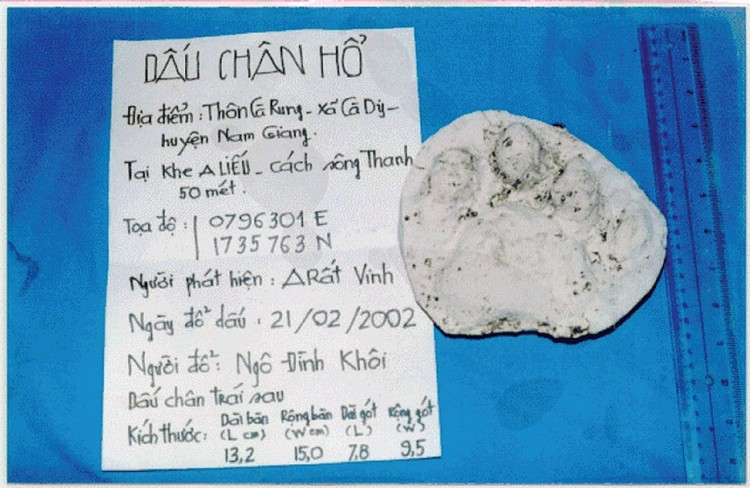 DẤU CHÂN HỔ
Địa điểm : Thôn Cà Rung - Xã Cà Dy -
huyện Nam Giang.
Tại Khe A LIẾU - cách sông Thanh
50 mét.
Tọa độ : 0796301 E
1735763 N
Người phát hiện : ARất Vinh
Ngày đổ dấu : 21/02/2002
Người đổ : Ngô Đình Khôi
Dấu chân trái sau
Kích thước : Dài bàn Rộng bàn Dài gót Rộng gót
(L cm) (W cm) (L) (W)
13,2 15,0 7,8 9,5